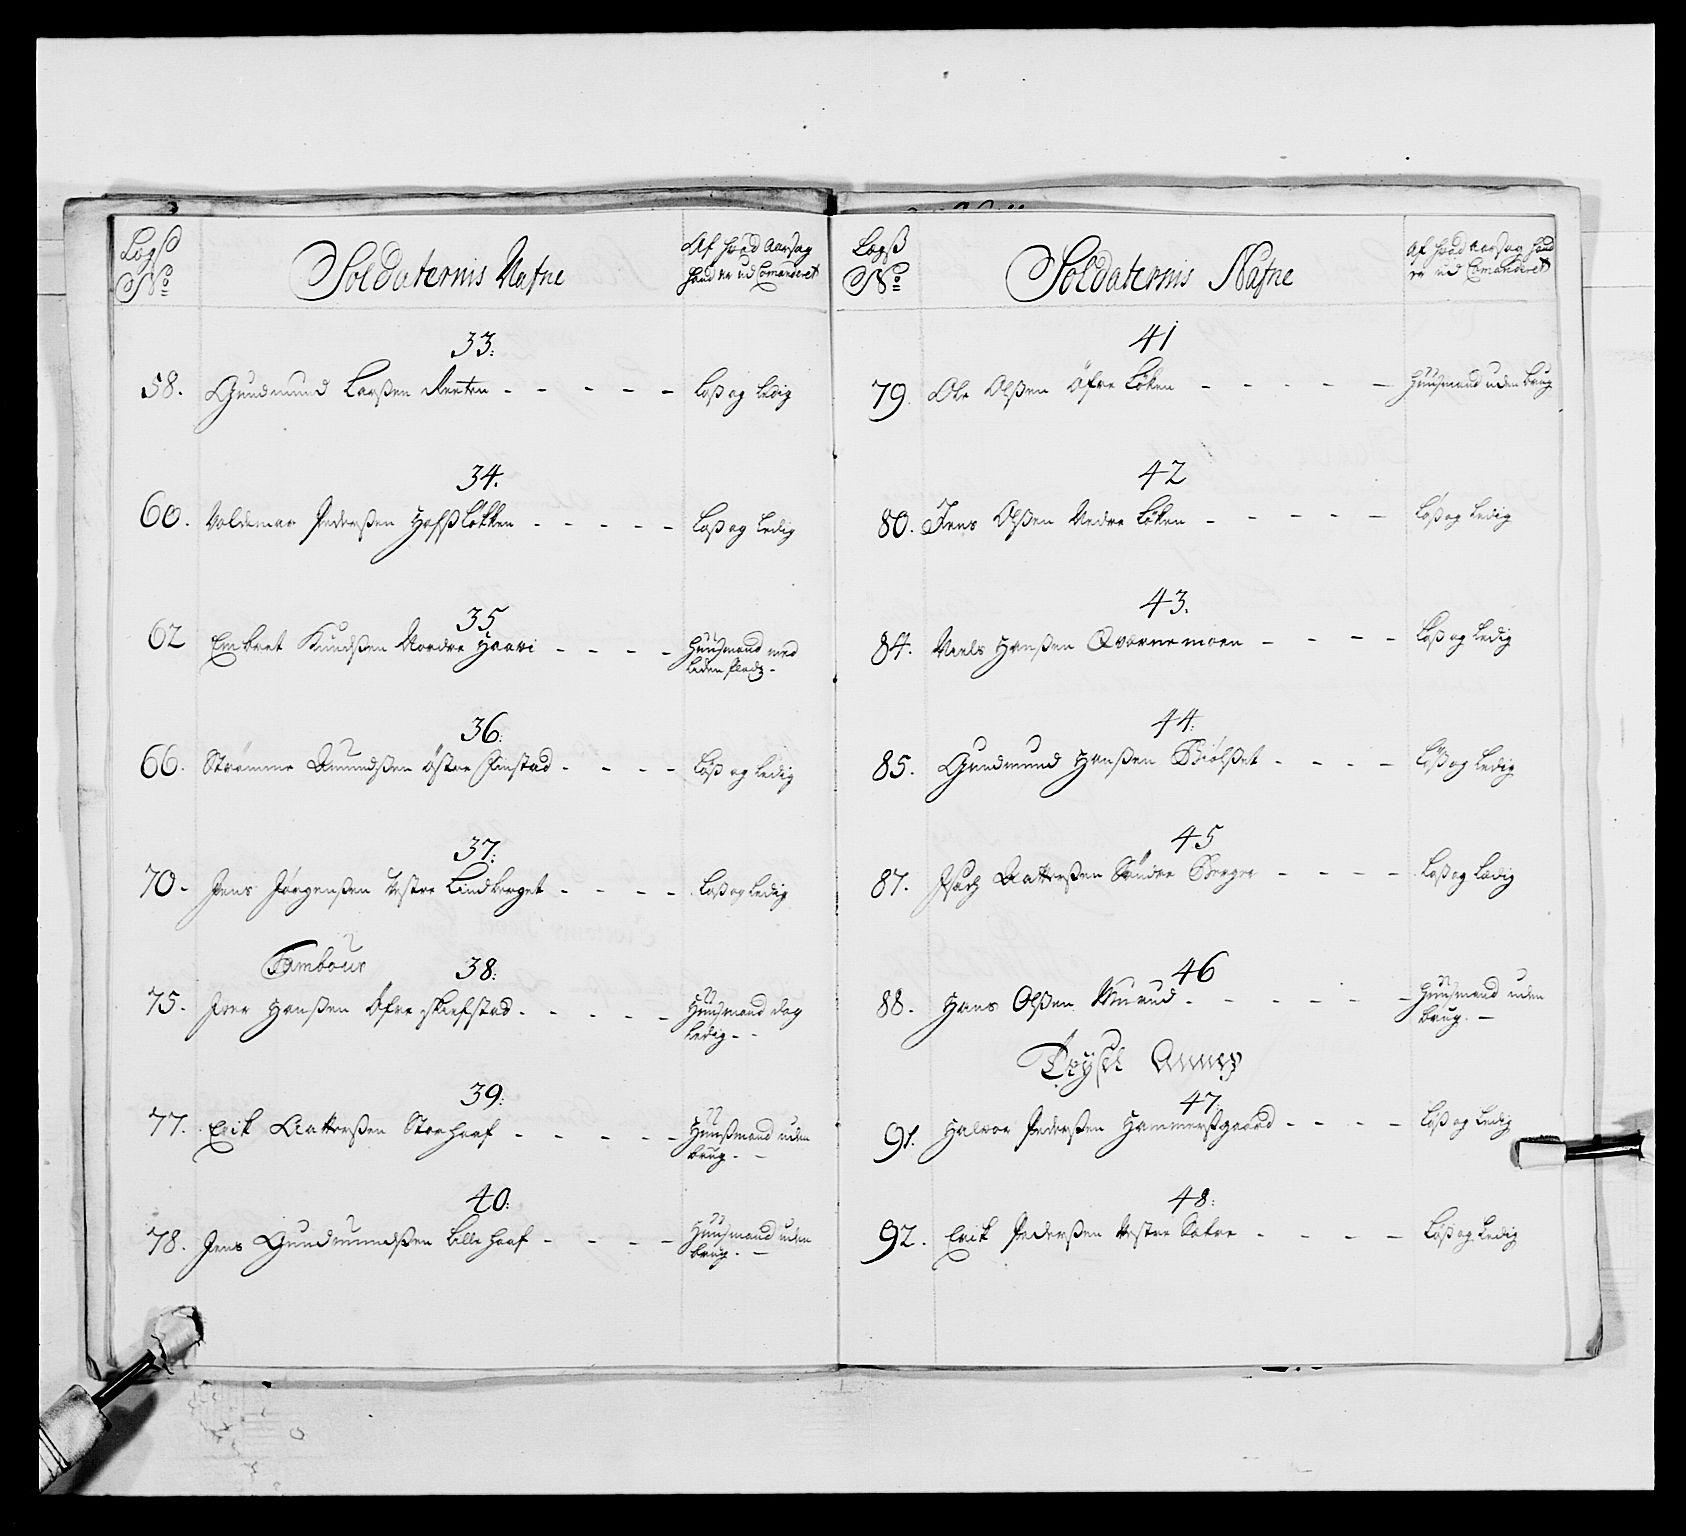 Lægs
No
Soldaternis Nafne
Af hvad Aarsag
hand er ud Comanderet
33.
58. Gudmund Larßen Reeten - - - - - Løß og ledig
34.
60. Woldemar Pederßen Hofsløkken - - - - - Løß og ledig
35
62 Embret Knudßen Nordre Haavi - - - - Huusmand med
liden Plads -
36.
66. Strømme Amundßen Østre Finstad - - - - Løß og ledig
37.
70. Jens Jørgenßen Vestre Lindberget - - - - Løß og ledig
Tambour
38.
75. Iver Hanßen Øfre Skiefstad - - - - - Huusmand dog
ledig - -
39.
77. Erik Aatterßen Storhaaf - - - - - Huusmand uden
brug - -
40.
78. Jens Gundmundßen Lille Haaf - - - - Huusmand uden
brug - -
Lægß
No
Soldaternis Nafne
Af hvad Aarsag hand
er ud Comanderet
41
79. Ole Olßen Øfre Løken - - - - - Huusmand uden brug
42
80. Jens Olßen Nedre Løken - - - - - Løß og ledig
43.
84. Niels Hanßen Qvernemoen - - - - Løß og ledig
44.
85. Gundmund Hanßen Biølset - - - - Løß og ledig
45
87. Isach Aatterßen Søndre Berger - - - - Løß og ledig
46
88. Hans Olßen Murud - - - - - Huusmand uden
brug. -
Trysil Annex
47.
91. Halvor Pederßen Hammersgaard - - - - Løß og ledig
48.
92. Erik Pederßen Vestre Sætre - - - - Løß og ledig